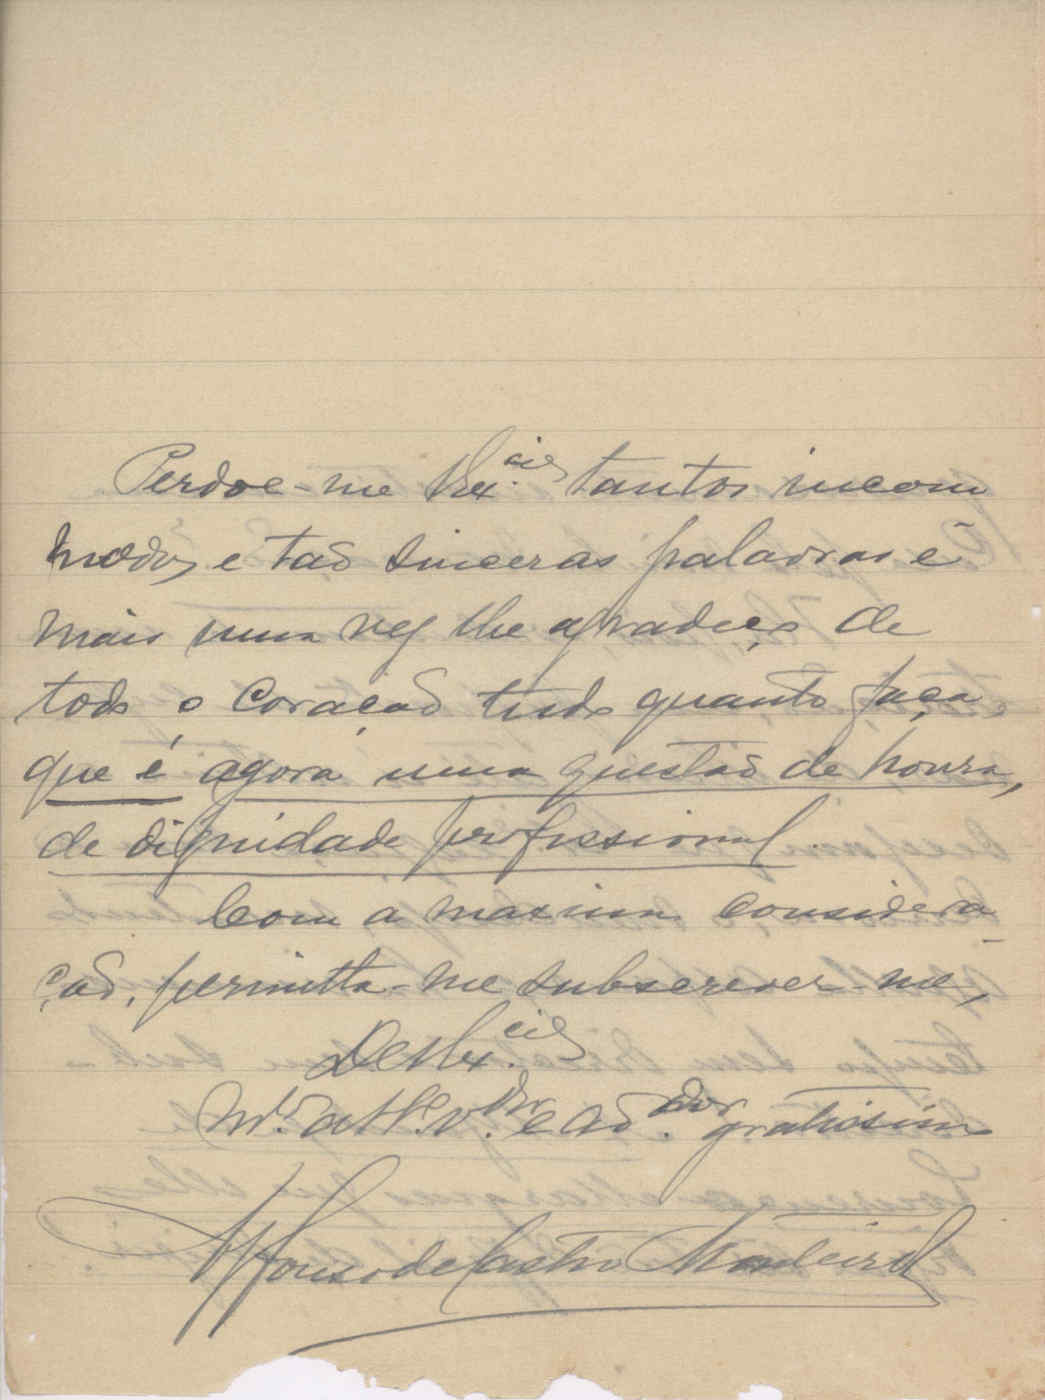 Perdoe-me V. Ex.cia tantos incom
modos e tão sinceras palavras e
mais uma vez lhe agradeço de
todo o coração tudo quanto faça,
que é agora uma questão de honra,
de dignidade profissional.
Com a maxima considera-
ção, permitta-me subscrever-me,
De V. Ex.cia
M.to att.o v.dor e ad.dor gratissimo
Affonso de Castro Monteiro